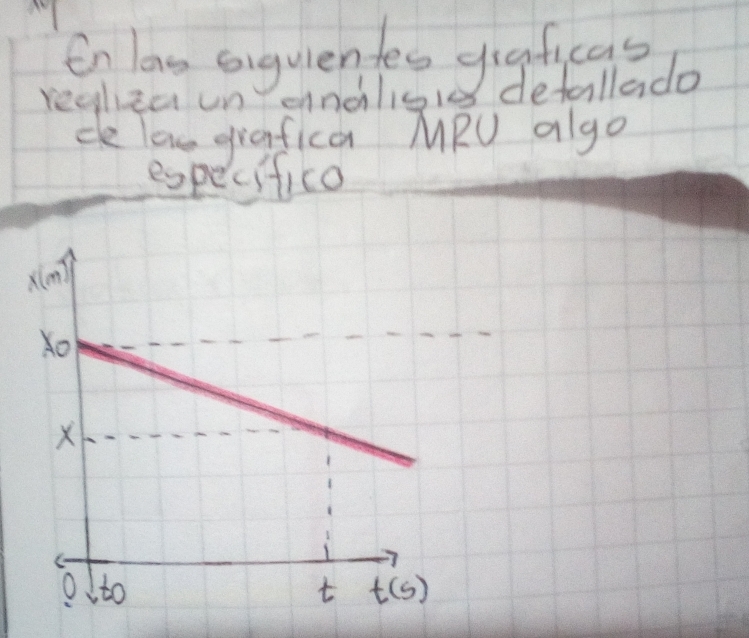 En las siguientes graficas
realiza un análisis detallado
de las grafica MRU algo
específico
x(m)
xo
x
0 to t t(s)